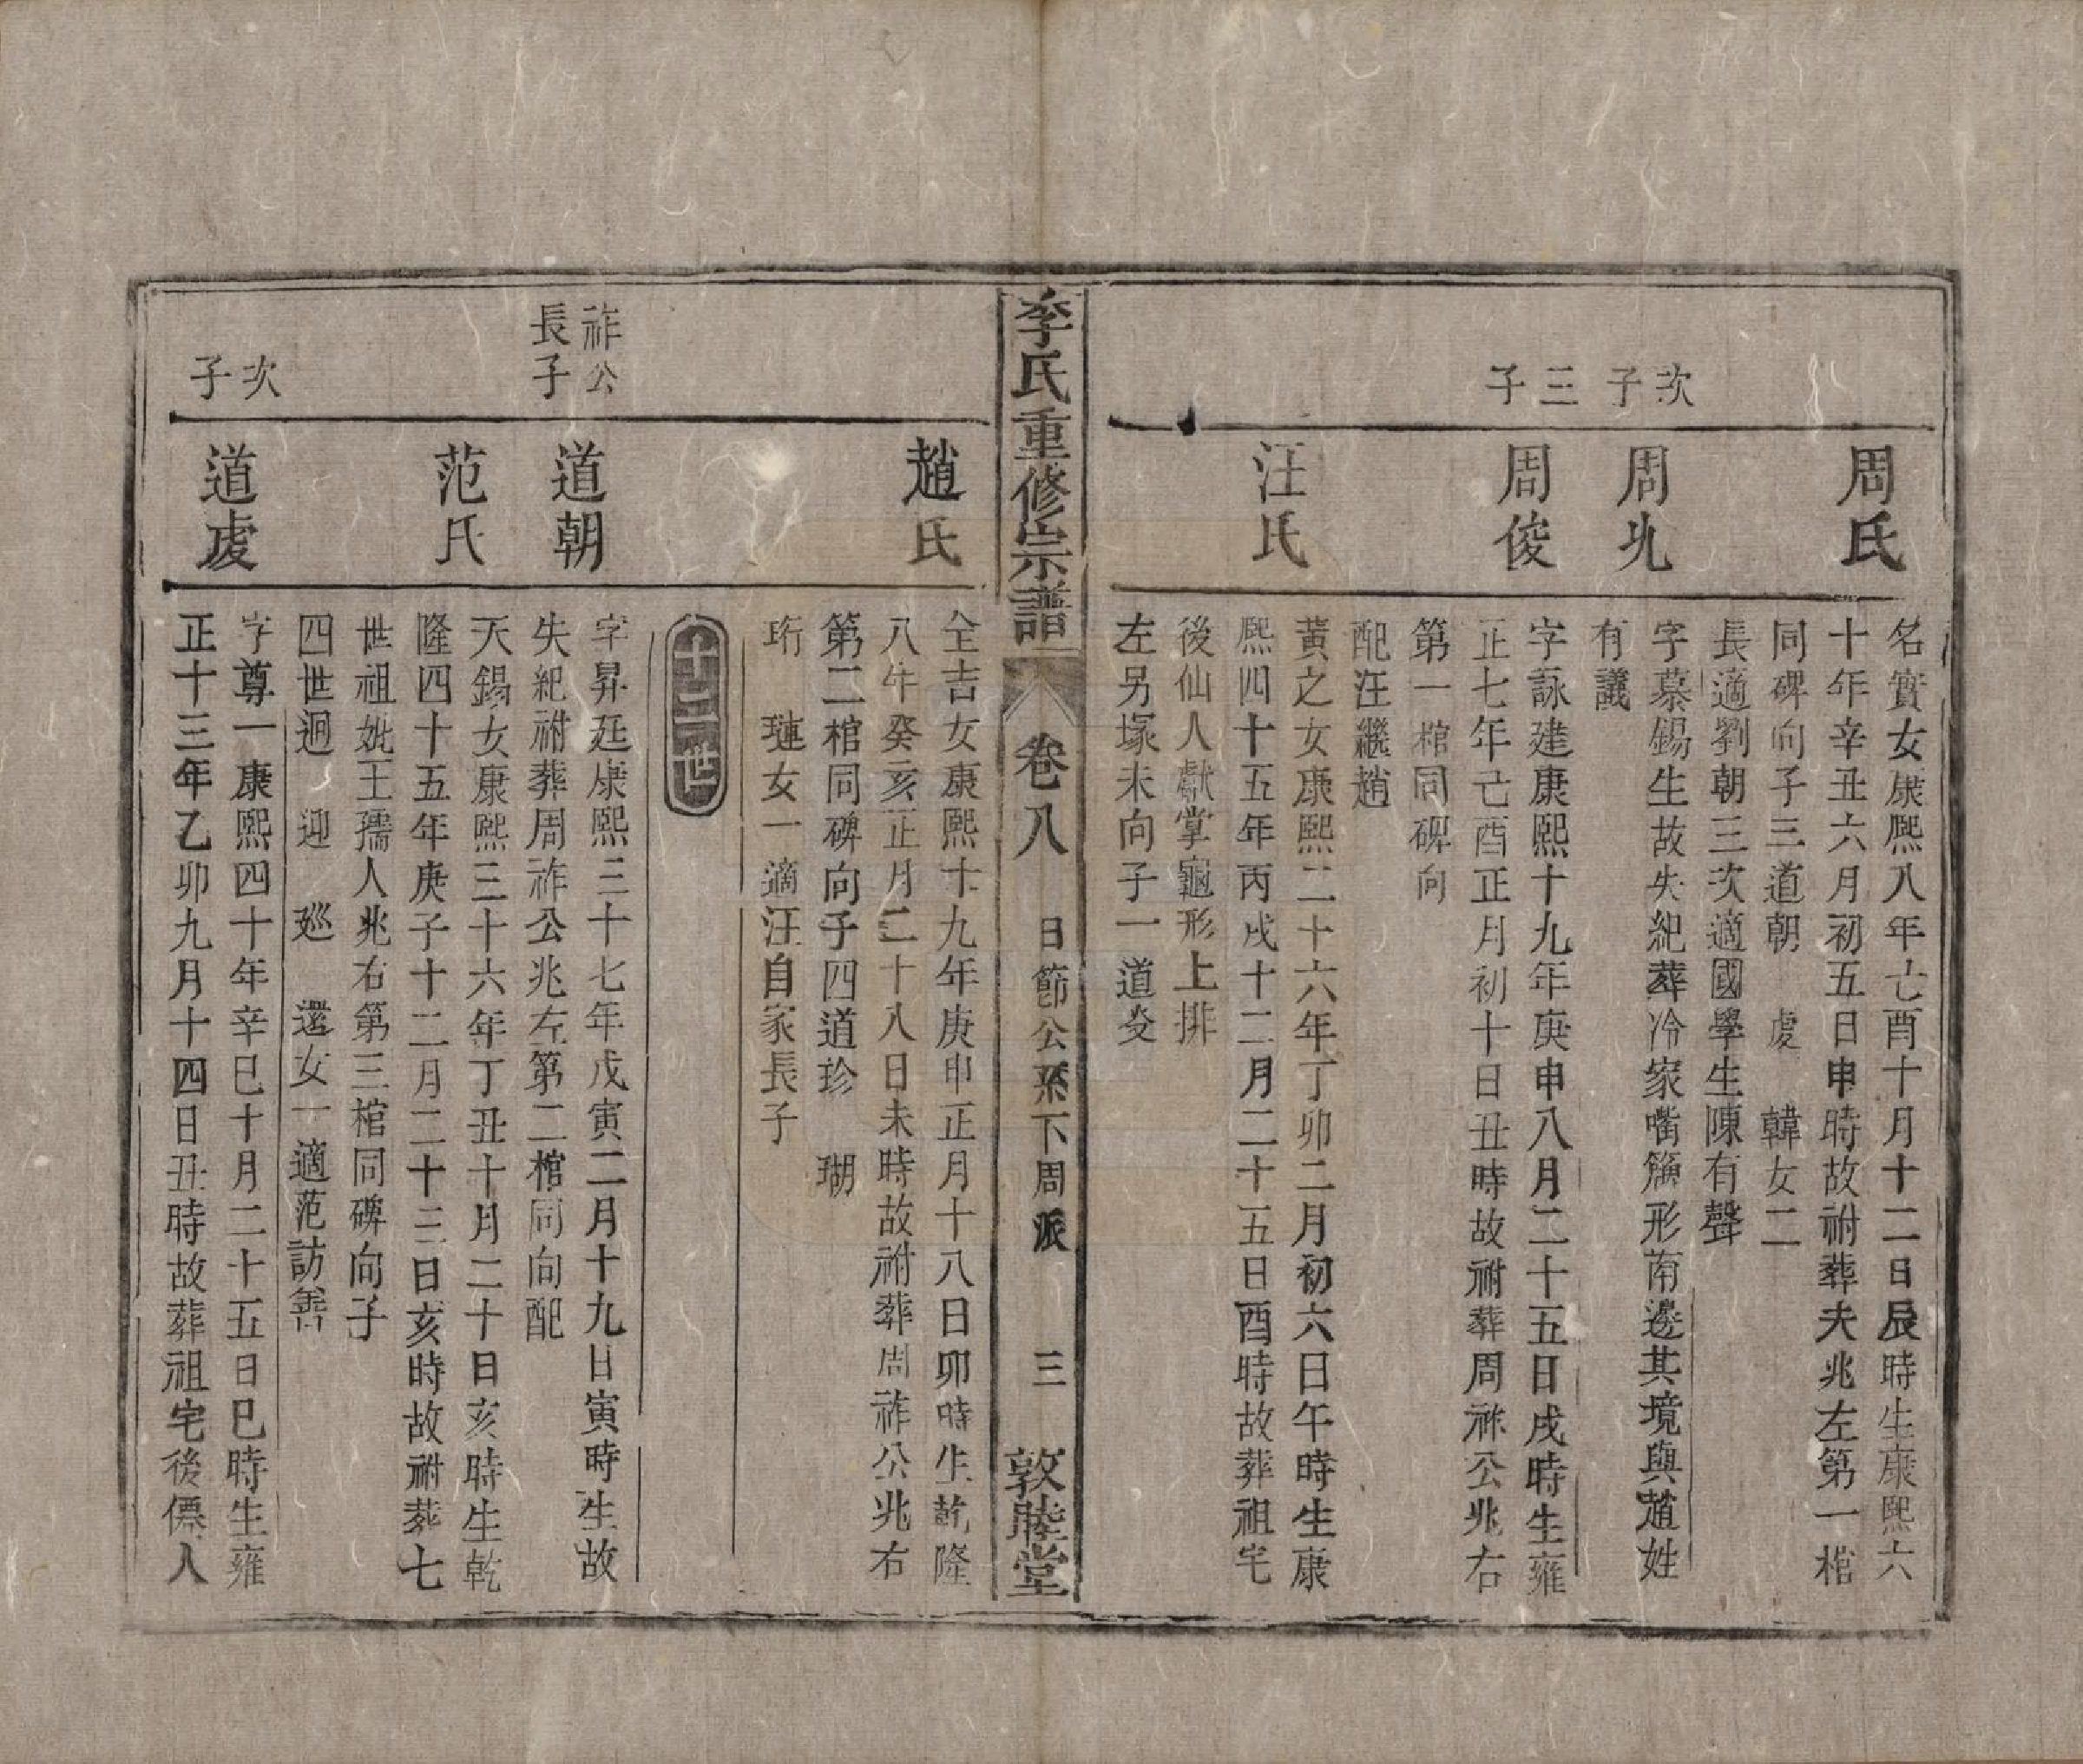 周氏
名實女康熙八年七酉十月十二日辰時生康熙六
十年辛丑六月初五日申時故祔葬夫兆左第一棺
同碑向子三道朝 虔 韓女二
長適劉朝三次適國學生陳有聲
次子
周㐀
字慕錫生故失紀葬冷家嘴簰形南邊其境與趙姓
有議
三子
周俊
字詠建康熙十九年庚申八月二十五日戌時生雍
正七年己酉正月初十日丑時故祔葬周祚公兆右
第一棺同碑向
配汪繼趙
汪氏
黃之女康熙二十六年丁卯二月初六日午時生康
熙四十五年丙戌十二月二十五日酉時故葬祖宅
後仙人獻掌龜形上排
左另塚未向子一道㸚
李氏重修宗譜 卷八 日節公系下周派 三 敦睦堂
趙氏
全吉女康熙十九年庚申正月十八日卯時生乾隆
八年癸亥正月二十八日未時故祔葬周祚公兆右
第二棺同碑向子四道珍 瑚
珩 璉女一適汪自家長子
十三世
祚公長子
道朝
字昇廷康熙三十七年戊寅二月十九日寅時生故
失紀祔葬周祚公兆左第二棺同向配
范氏
天錫女康熙三十六年丁丑十月二十日亥時生乾
隆四十五年庚子十二月二十三日亥時故祔葬七
世祖妣王孺人兆右第三棺同碑向子
四世迴 迎 廵 還女一適范訪
次子
道虔
字尊一康熙四十年辛巳十月二十五日巳時生雍
正十三年乙卯九月十四日丑時故葬祖宅後僊人